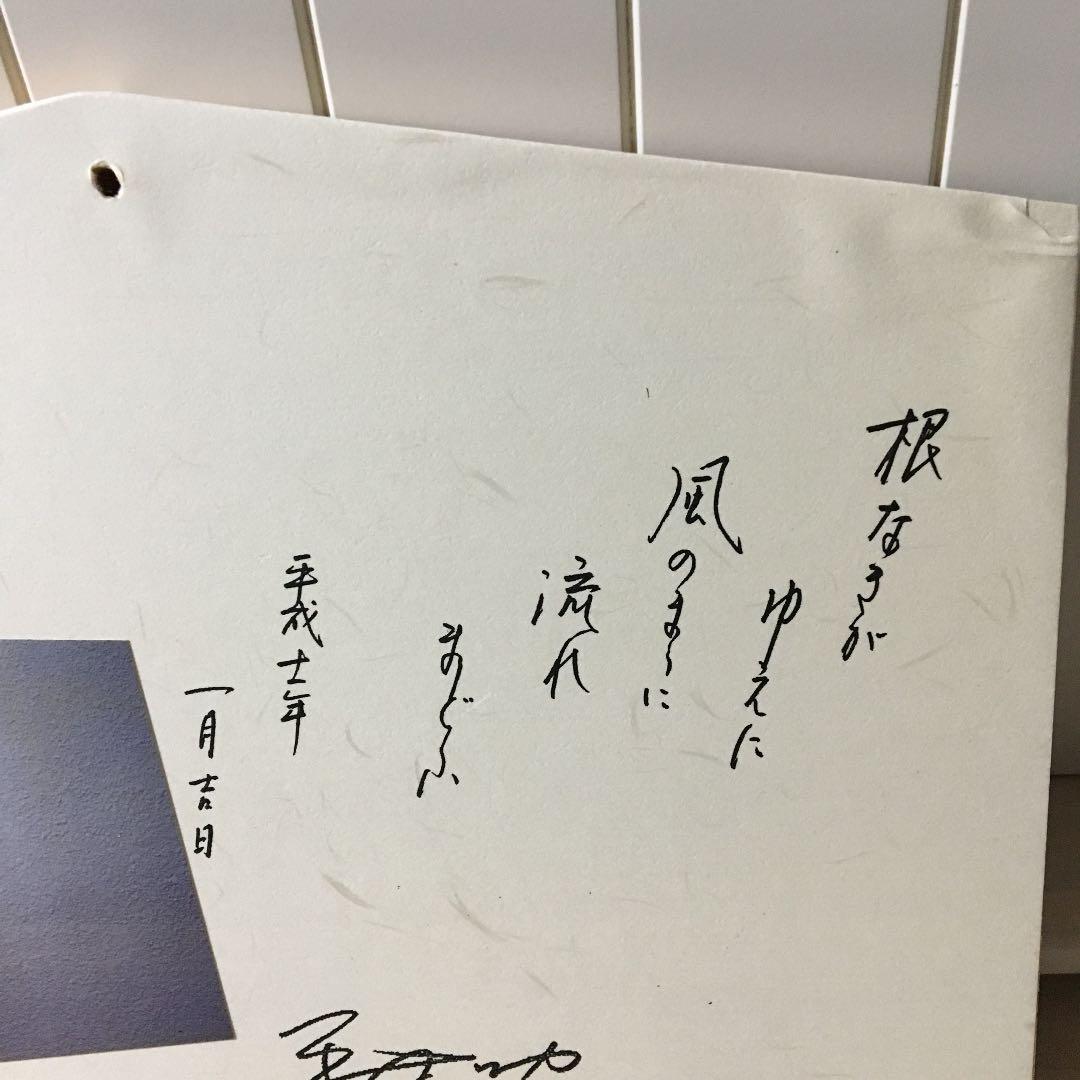 根なきが
ゆえに
風のまゝに
流れ
まどふ
平成十一年
一月吉日